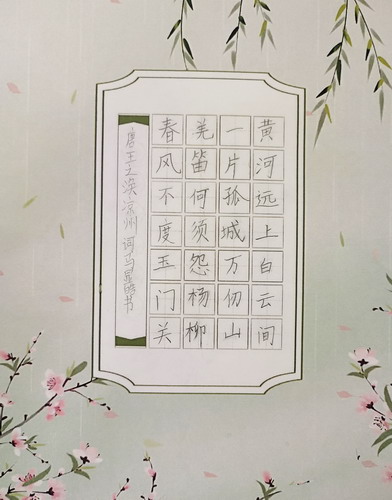 黄河远上白云间
一片孤城万仞山
羌笛何须怨杨柳
春风不度玉门关
唐王之涣·凉州词